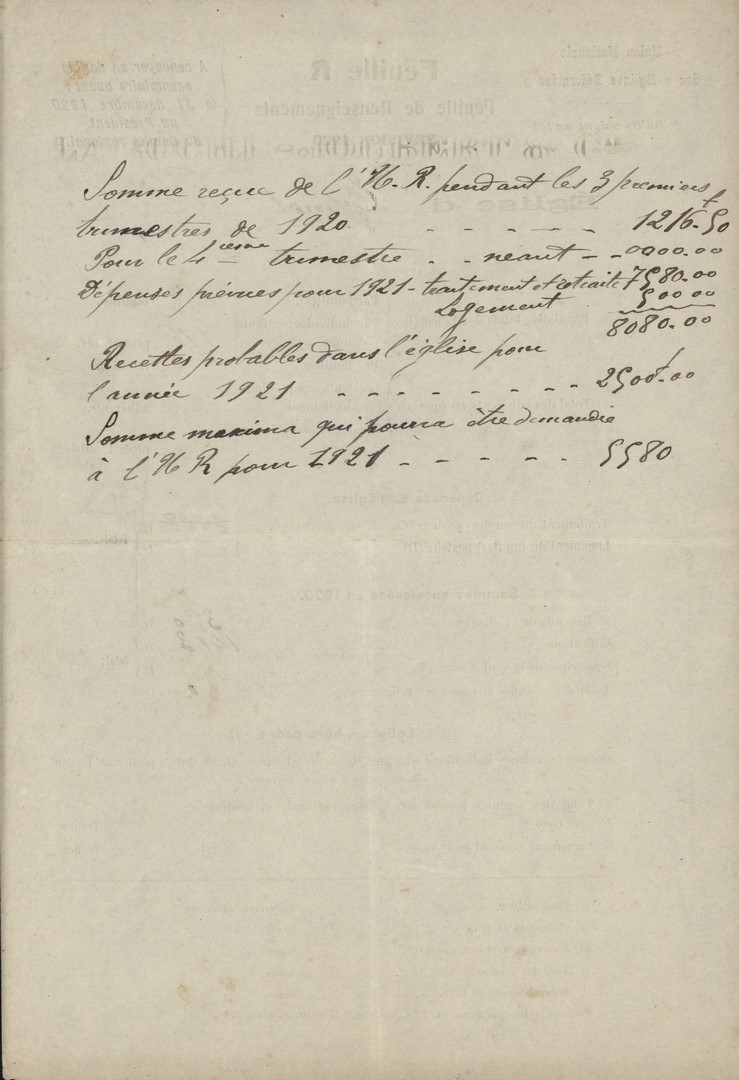 Somme reçue de l'U. R. pendant les 3 premiers
trimestres de 1920 - - - - - - 1216f.50
Pour le 4ième trimestre - - néant - - 0000.00
Dépenses prévues pour 1921 - traitement et retraite 7580.00
Logement 500 00
8080.00
Recettes probables dans l'église pour
l'année 1921 - - - - - - - - 2500f.00
Somme maxima qui pourra être demandée
à l'U R pour 1921 - - - - - 5580